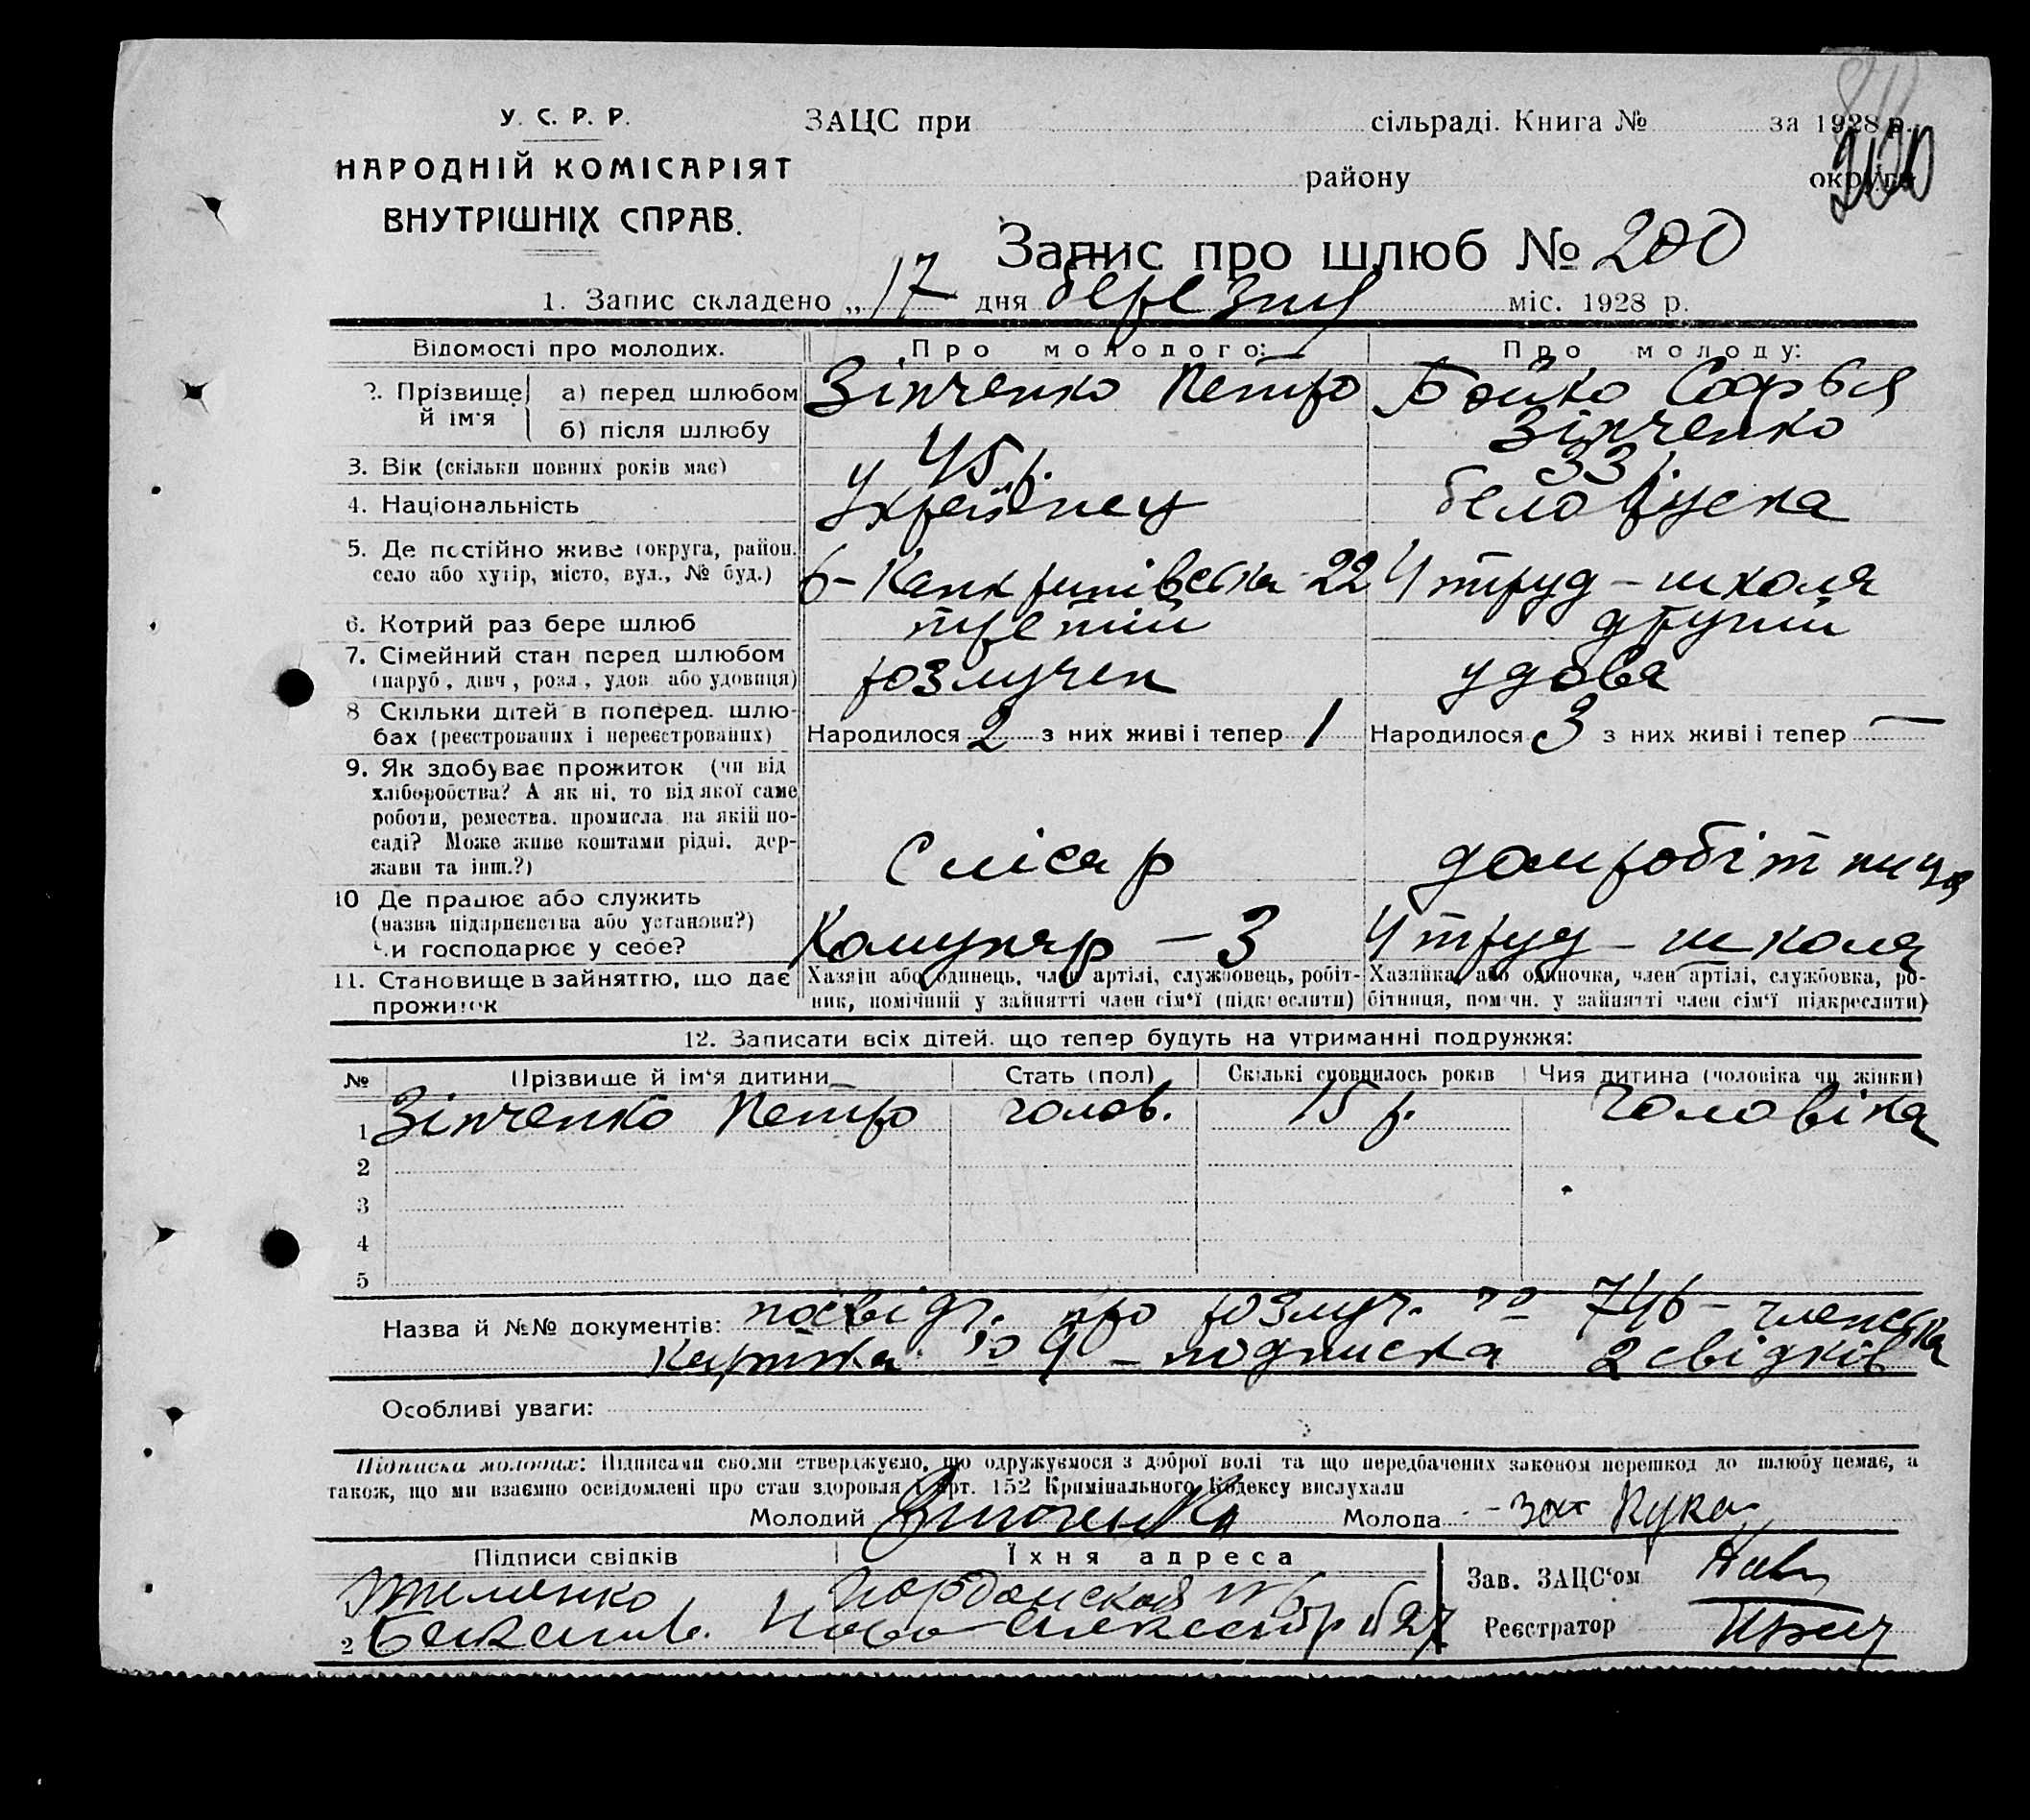 У. С. Р. Р.
НАРОДНІЙ КОМІСАРІЯТ
ВНУТРІШНІХ СПРАВ.
ЗАЦС при сільраді. Книга № за 1928 р.
району округи
200
Запис про шлюб № 200
1. Запис складено „17 дня березня міс. 1928 р.
Відомості про молодих. Про молодого: Про молоду:
2. Прізвище й ім'я а) перед шлюбом Зінченко Петро Бойко Софья
б) після шлюбу Зінченко
3. Вік (скільки повних років має) 45 р. 33 р.
4. Національність Українец белоруска
5. Де постійно живе (округа, район, село або хутір, місто, вул., № буд.) 6- Канкринівська 22 4 труд - школа
6. Котрий раз бере шлюб третій другий
7. Сімейний стан перед шлюбом (паруб., дівч., розл., удов. або удовиця) розлучен удова
8 Скільки дітей в поперед. шлюбах (реєстрованих і нереєстрованих) Народилося 2 з них живі і тепер 1 Народилося 3 з них живі і тепер —
9. Як здобуває прожиток (чи від хліборобства? А як ні, то від якої саме роботи, ремества, промисла, на якій посаді? Може живе коштами рідні, держави та інш.?) Слісар домробітниця
10 Де працює або служить (назва підприємства або установи?) Чи господарює у себе? Комунар - 3 4 труд - школа
11. Становище в зайняттю, що дає прожиток Хазяїн або одинець, член артілі, службовець, робітник, помічний у зайнятті член сім'ї (підкреслити) Хазяйка, або одиночка, член артілі, службовка, робітниця, помічн. у зайнятті член сім'ї підкреслити)
12. Записати всіх дітей, що тепер будуть на утриманні подружжя:
№ Прізвище й ім'я дитини Стать (пол) Скількі сповнилось років Чия дитина (чоловіка чи жінки)
1 Зінченко Петро чолов. 15 р. Чоловіка
2
3
4
5
Назва й №№ документів: посвідч. про розлуч. № 746 - членська
картка № 9 - подписка 2 свідків
Особливі уваги:
Підписка молодих: Підписами своїми стверджуємо, що одружуємося з доброї волі та що передбачених законом перешкод до шлюбу немає, а
також, що ми взаємно освідомлені про стан здоровля і арт. 152 Кримінального Кодексу вислухали
Молодий Молода
Підписи свідків Їхня адреса Зав. ЗАЦС'ом
2 Реєстратор